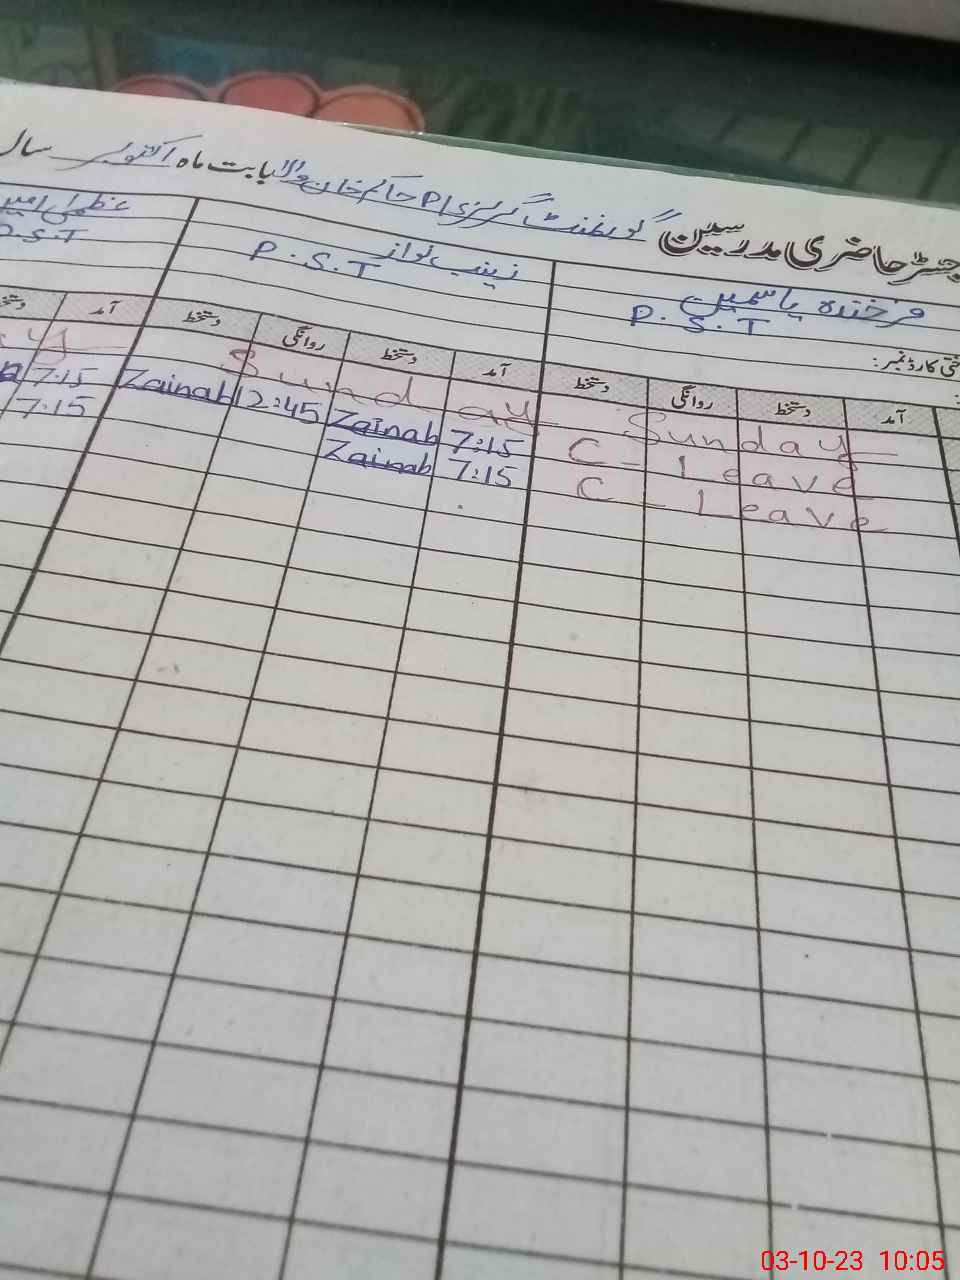 رجسٹر حاضری مدرسین گورنمنٹ گرلز حاکم خان والا بابت ماہ اکتوبر سال
فرخندہ یاسمین
P.S.T
زینب نواز
P.S.T
P.S.T
آمد دستخط روانگی دستخط
آمد دستخط روانگی دستخط
آمد
Sunday
C - Leave
C - Leave
Sunday
Zainab 12:45 Zainab 7:15
Zainab 7:15
7:15
7:15
03-10-23 10:05